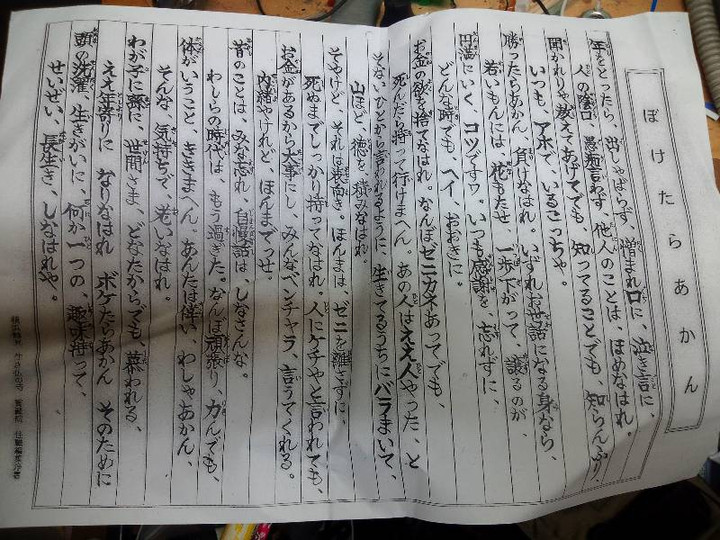 ぼけたらあかん
年をとったら、出しゃばらず、憎まれ口に、泣き言に、
人の陰口、愚痴言わず、他人のことは、ほめなはれ。
聞かれりゃ教えてあげてでも、知ってることでも、知らんふり、
いつも、アホで、いるこっちゃ。
勝ったらあかん、負けなはれ。いずれお世話になる身なら、
若いもんには、花もたせ、一歩下がって、譲るのが、
円満にいく、コツですワ。いつも感謝を、忘れずに、
どんな時でも、ヘイ、おおきに。
お金の欲を捨てなはれ。なんぼゼニカネあってでも、
死んだら持って行けまへん。あの人はええ人やった、と
そないひとから言われるように、生きてるうちにバラまいて、
山ほど、徳を、積みなはれ。
そやけど、それは表向き。ほんまは、ゼニを離さずに、
死ぬまでしっかり持ってなはれ。人にケチやと言われても、
お金があるから大事にし、みんなベンチャラ、言うてくれる。
内緒やけれど、ほんまでっせ。
昔のことは、みな忘れ、自慢話は、しなさんな。
わしらの時代は、もう過ぎた、なんぼ頑張り、力んでも、
体がいうこと、ききまへん。あんたは偉い、わしゃあかん、
そんな、気持ちで、老いなはれ。
わが子に孫に、世間さま、どなたからでも、慕われる、
ええ年寄りに、なりなはれ　ボケたらあかん　そのために
頭の洗濯、生きがいに、何か一つの、趣味持って、
せいぜい、長生き、しなはれや。